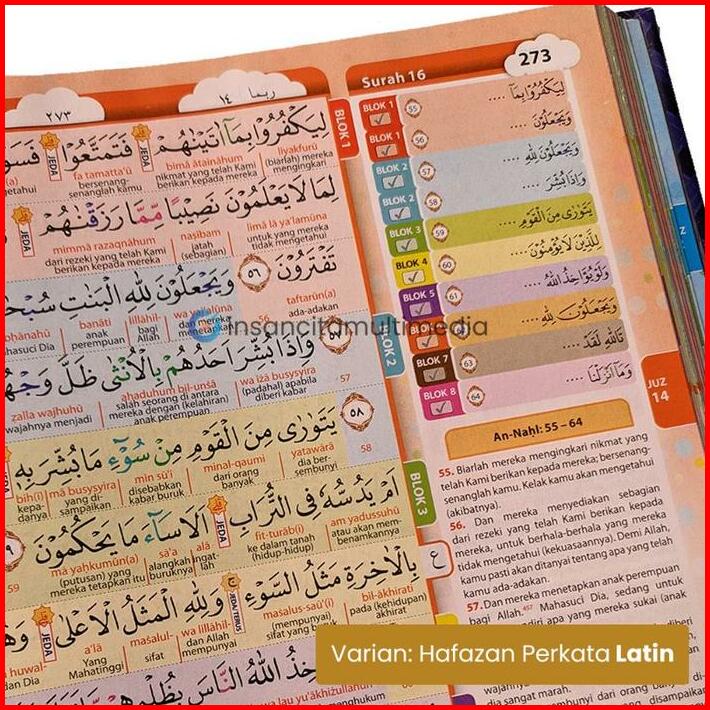 ٢٧٣
ربما ١٤
Surah 16
273
لِيَكْفُرُوْا بِمَآ اٰتَيْنٰهُمْ ۗ فَتَمَتَّعُوْا ۗ
JEDA
JEDA
BLOK 1
liyakfurū
bimā ātaināhum
fa tamatta'ū
(biarlah) mereka mengingkari
nikmat yang telah Kami berikan kepada mereka
bersenang-senanglah kamu
لِمَا لَا يَعْلَمُوْنَ نَصِيْبًا مِّمَّا رَزَقْنٰهُمْ
JEDA
limā lā ya'lamūna
nasībam
mimmā razaqnāhum
untuk yang mereka tidak mengetahui
jatah (sebagian)
dari rezeki yang telah Kami berikan kepada mereka
تَفْتَرُوْنَ ٥٦ وَيَجْعَلُوْنَ لِلّٰهِ الْبَنٰتِ
taftarūn(a)
56
wa yaj'alūna
lillāhi
banāti
ada-adakan
dan mereka menetapkan
bagi Allah
anak perempuan
BLOK 2
وَاِذَا بُشِّرَ اَحَدُهُمْ بِالْاُنْثٰى ظَلَّ
57
wa iżā busysyira
aḥaduhum bil-unṡā
zalla wajhuhū
(padahal) apabila diberi kabar
salah seorang di antara mereka dengan (kelahiran) anak perempuan
wajahnya menjadi
٥٨ يَتَوٰرٰى مِنَ الْقَوْمِ مِنْ سُوْۤءِ مَا بُشِّرَ بِهٖ
58
yatawārā
minal-qaumi
min sū'i
mā busysyira
bih(i)
dia ber-sembunyi
dari orang banyak
disebabkan kabar buruk
yang di-sampaikan
kepa-danya
BLOK 3
اَمْ يَدُسُّهٗ فِى التُّرَابِ ۗ اَلَا سَاۤءَ مَا يَحْكُمُوْنَ
JEDA
am yadussuhū
fit-turāb(i)
alā
sā'a
mā yaḥkumūn(a)
59
atau akan mem-benamkannya
ke dalam tanah (hidup-hidup)
ingat-lah
alangkah buruknya
(putusan) yang mereka tetapkan itu
ع
بِالْاٰخِرَةِ مَثَلُ السَّوْءِ ۚ وَلِلّٰهِ الْمَثَلُ الْاَعْلٰى ۗ
JEDA
JEDA/TERUS
bil-ākhirati
maṡalus-sau'(i)
wa lillāhil-
maṡalul-
a'lā
pada (kehidupan) akhirat
(mempunyai)
dan Allah mempunyai
sifat
Yang Mahatinggi
BLOK 1 55 لِيَكْفُرُوْا بِمَآ ....
BLOK 1 56 وَيَجْعَلُوْنَ ....
BLOK 2 57 وَيَجْعَلُوْنَ لِلّٰهِ ....
BLOK 2 58 وَاِذَا بُشِّرَ ....
BLOK 3 59 يَتَوٰرٰى مِنَ الْقَوْمِ ....
BLOK 4 60 لِلَّذِيْنَ لَا يُؤْمِنُوْنَ ....
BLOK 5 61 وَلَوْ يُؤَاخِذُ اللّٰهُ ....
62 وَيَجْعَلُوْنَ لِلّٰهِ ....
BLOK 7 63 تَاللّٰهِ لَقَدْ ....
BLOK 8 64 وَمَآ اَنْزَلْنَا ....
JUZ
14
insancitamultimedia
An-Naḥl: 55 – 64
55. Biarlah mereka mengingkari nikmat yang
telah Kami berikan kepada mereka; bersenang-
senanglah kamu. Kelak kamu akan mengetahui
(akibatnya).
56. Dan mereka menyediakan sebagian
dari rezeki yang telah Kami berikan kepada
mereka, untuk berhala-berhala yang mereka
tidak mengetahui (kekuasaannya). Demi Allah,
kamu pasti akan ditanyai tentang apa yang telah
kamu ada-adakan.
57. Dan mereka menetapkan anak perempuan
bagi Allah.457 Mahasuci Dia, sedang untuk
diri apa yang mereka sukai (anak
Varian: Hafazan Perkata Latin